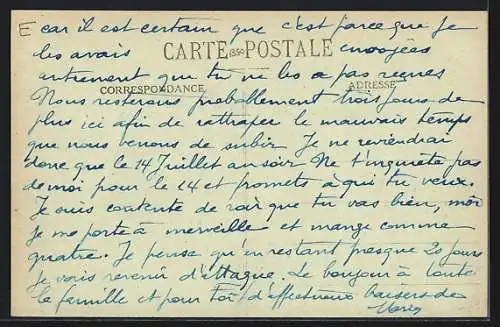 E car il est certain que c'est parce que je
les avais CARTE POSTALE envoyées
autrement que tu ne les a pas reçues
CORRESPONDANCE ADRESSE
Nous resterons probablement trois jours de
plus ici afin de rattraper le mauvais temps
que nous venons de subir. Je ne reviendrai
donc que le 14 Juillet au soir. Ne t'inquiète pas
de moi pour le 14 et promets à qui tu veux.
Je suis contente de voir que tu vas bien, moi
je me porte à merveille et mange comme
quatre. Je pense qu'en restant presque 20 jours
je vais revenir d'attaque. Le bonjour à toute
la famille et pour toi d'affectueux baisers de